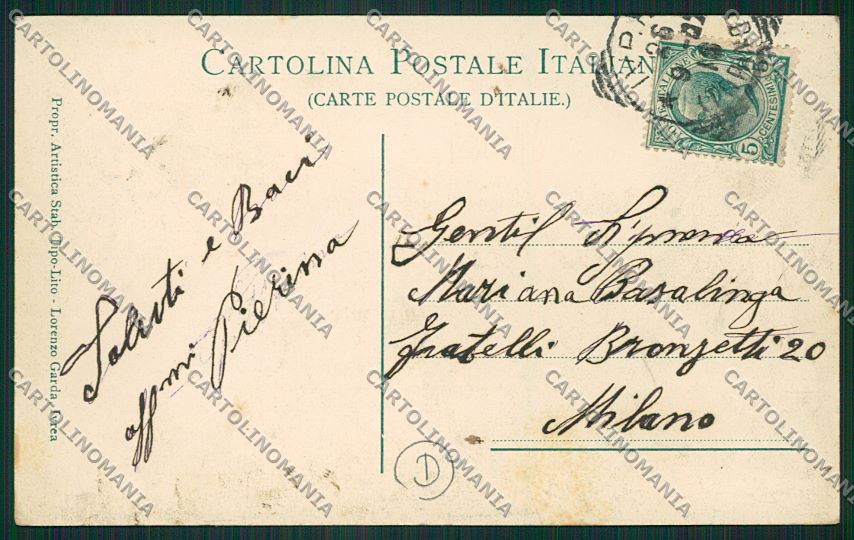 CARTOLINA POSTALE ITALIANA
(CARTE POSTALE D'ITALIE.)
Propr. Artistica Stab. Tipo-Lito - Lorenzo Garda, Ivrea
Saluti e Baci
affmi Pierina
Gentil Signorina
Mariana Basalinga
Fratelli Bronzetti 20
Milano
D
5
CENTESIMI
CARTOLINOMANIA